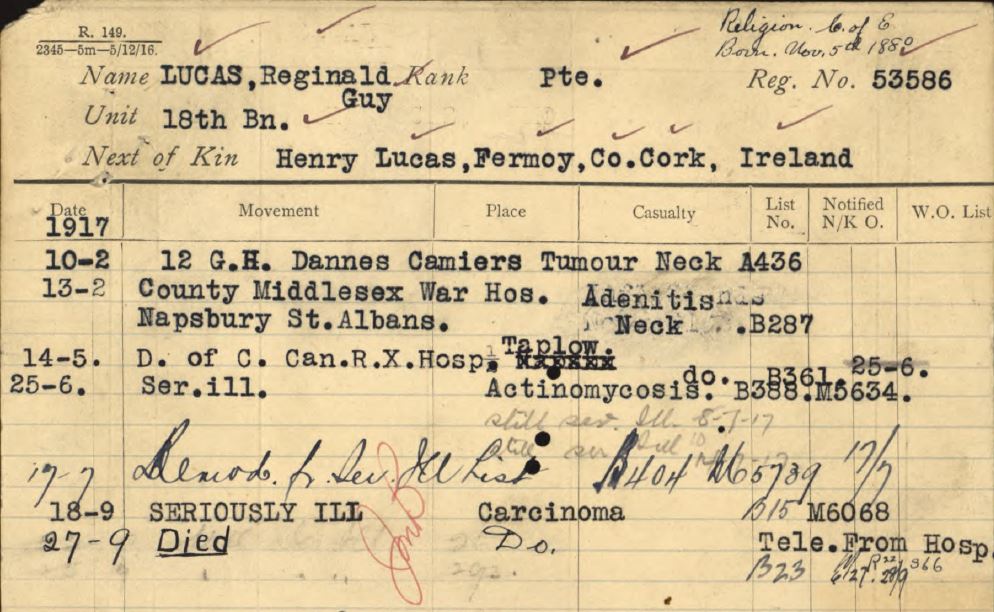 R. 149.
2345—5m—5/12/16.
Religion. C. of E
Born. Nov. 5th 1880
Name LUCAS, Reginald Rank Pte. Reg. No. 53586
Guy
Unit 18th Bn.
Next of Kin Henry Lucas, Fermoy, Co. Cork, Ireland
Date Movement Place Casualty List No. Notified N/K O. W.O. List
1917
10-2 12 G.H. Dannes Camiers Tumour Neck A436
13-2 County Middlesex War Hos. Adenitis
Napsbury St.Albans. Neck .B287
Taplow.
14-5. D. of C. Can.R.X.Hosp. do. B361. 25-6.
25-6. Ser.ill. Actinomycosis. B388.M5634.
still ser. Ill. 8-7-17
still ser Ill
17-7 Remod. fr Ser. Ill List B404 M5739 17/7
18-9 SERIOUSLY ILL Carcinoma B15 M6068
27-9 Died Do. Tele.From Hosp.
B23